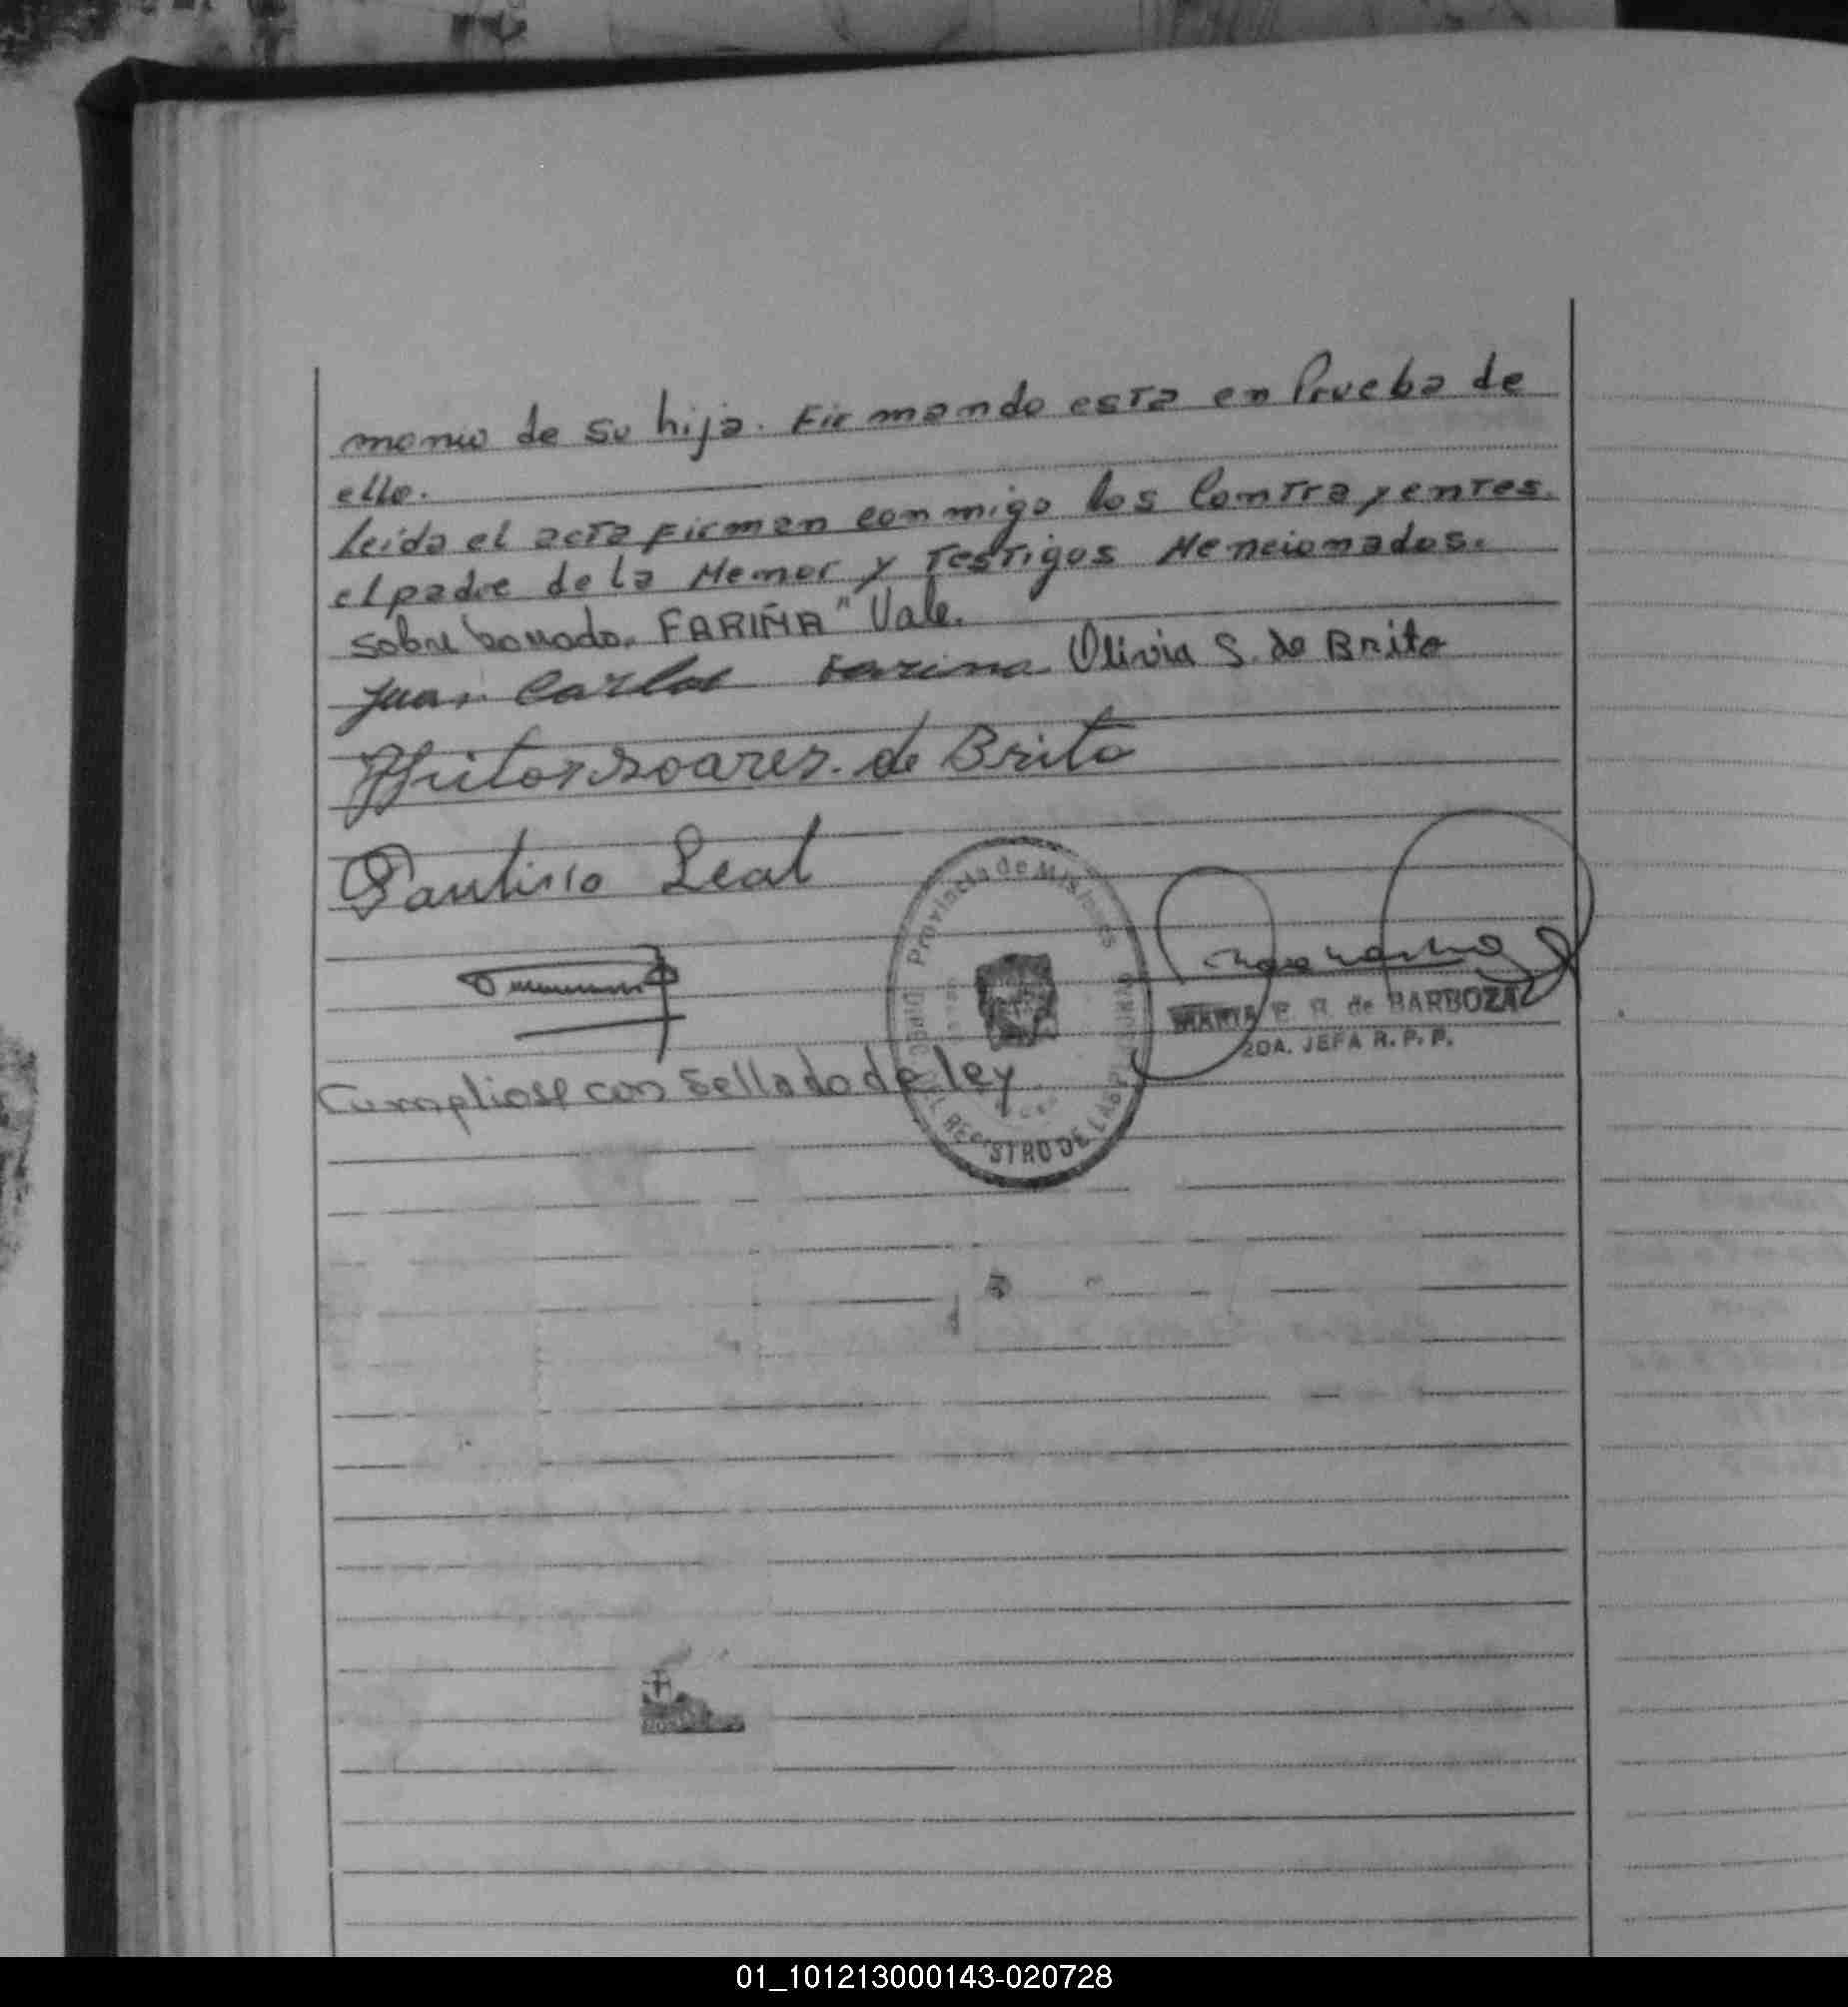 monio de su hija. Firmando esta en Prueba de
ello.
leida el acta Firman conmigo los Contrayentes.
el padre de la Menor y Testigos Mencionados.
sobre borrado. FARIÑA" Vale.
Juan Carlos Farina Olivia S. de Brito
Heitor soares. de Brito
Leal
Provincia de Misiones
REGISTRO DE LAS
MARIA E. R. de BARBOZA
2DA. JEFA R. P. P.
Cumpliose con sellado de ley
01_101213000143-020728